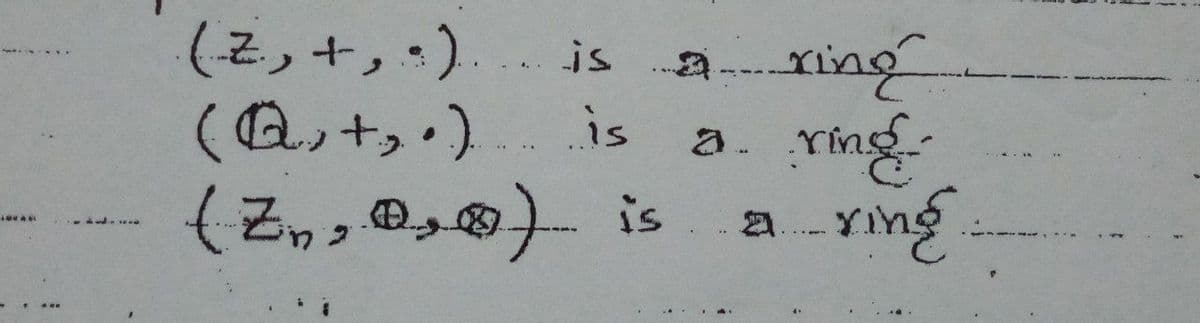 (Z, +, ·) is a ring
(Q, +, ·) is a ring
(Zn, ⊕, ⊗) is a ring